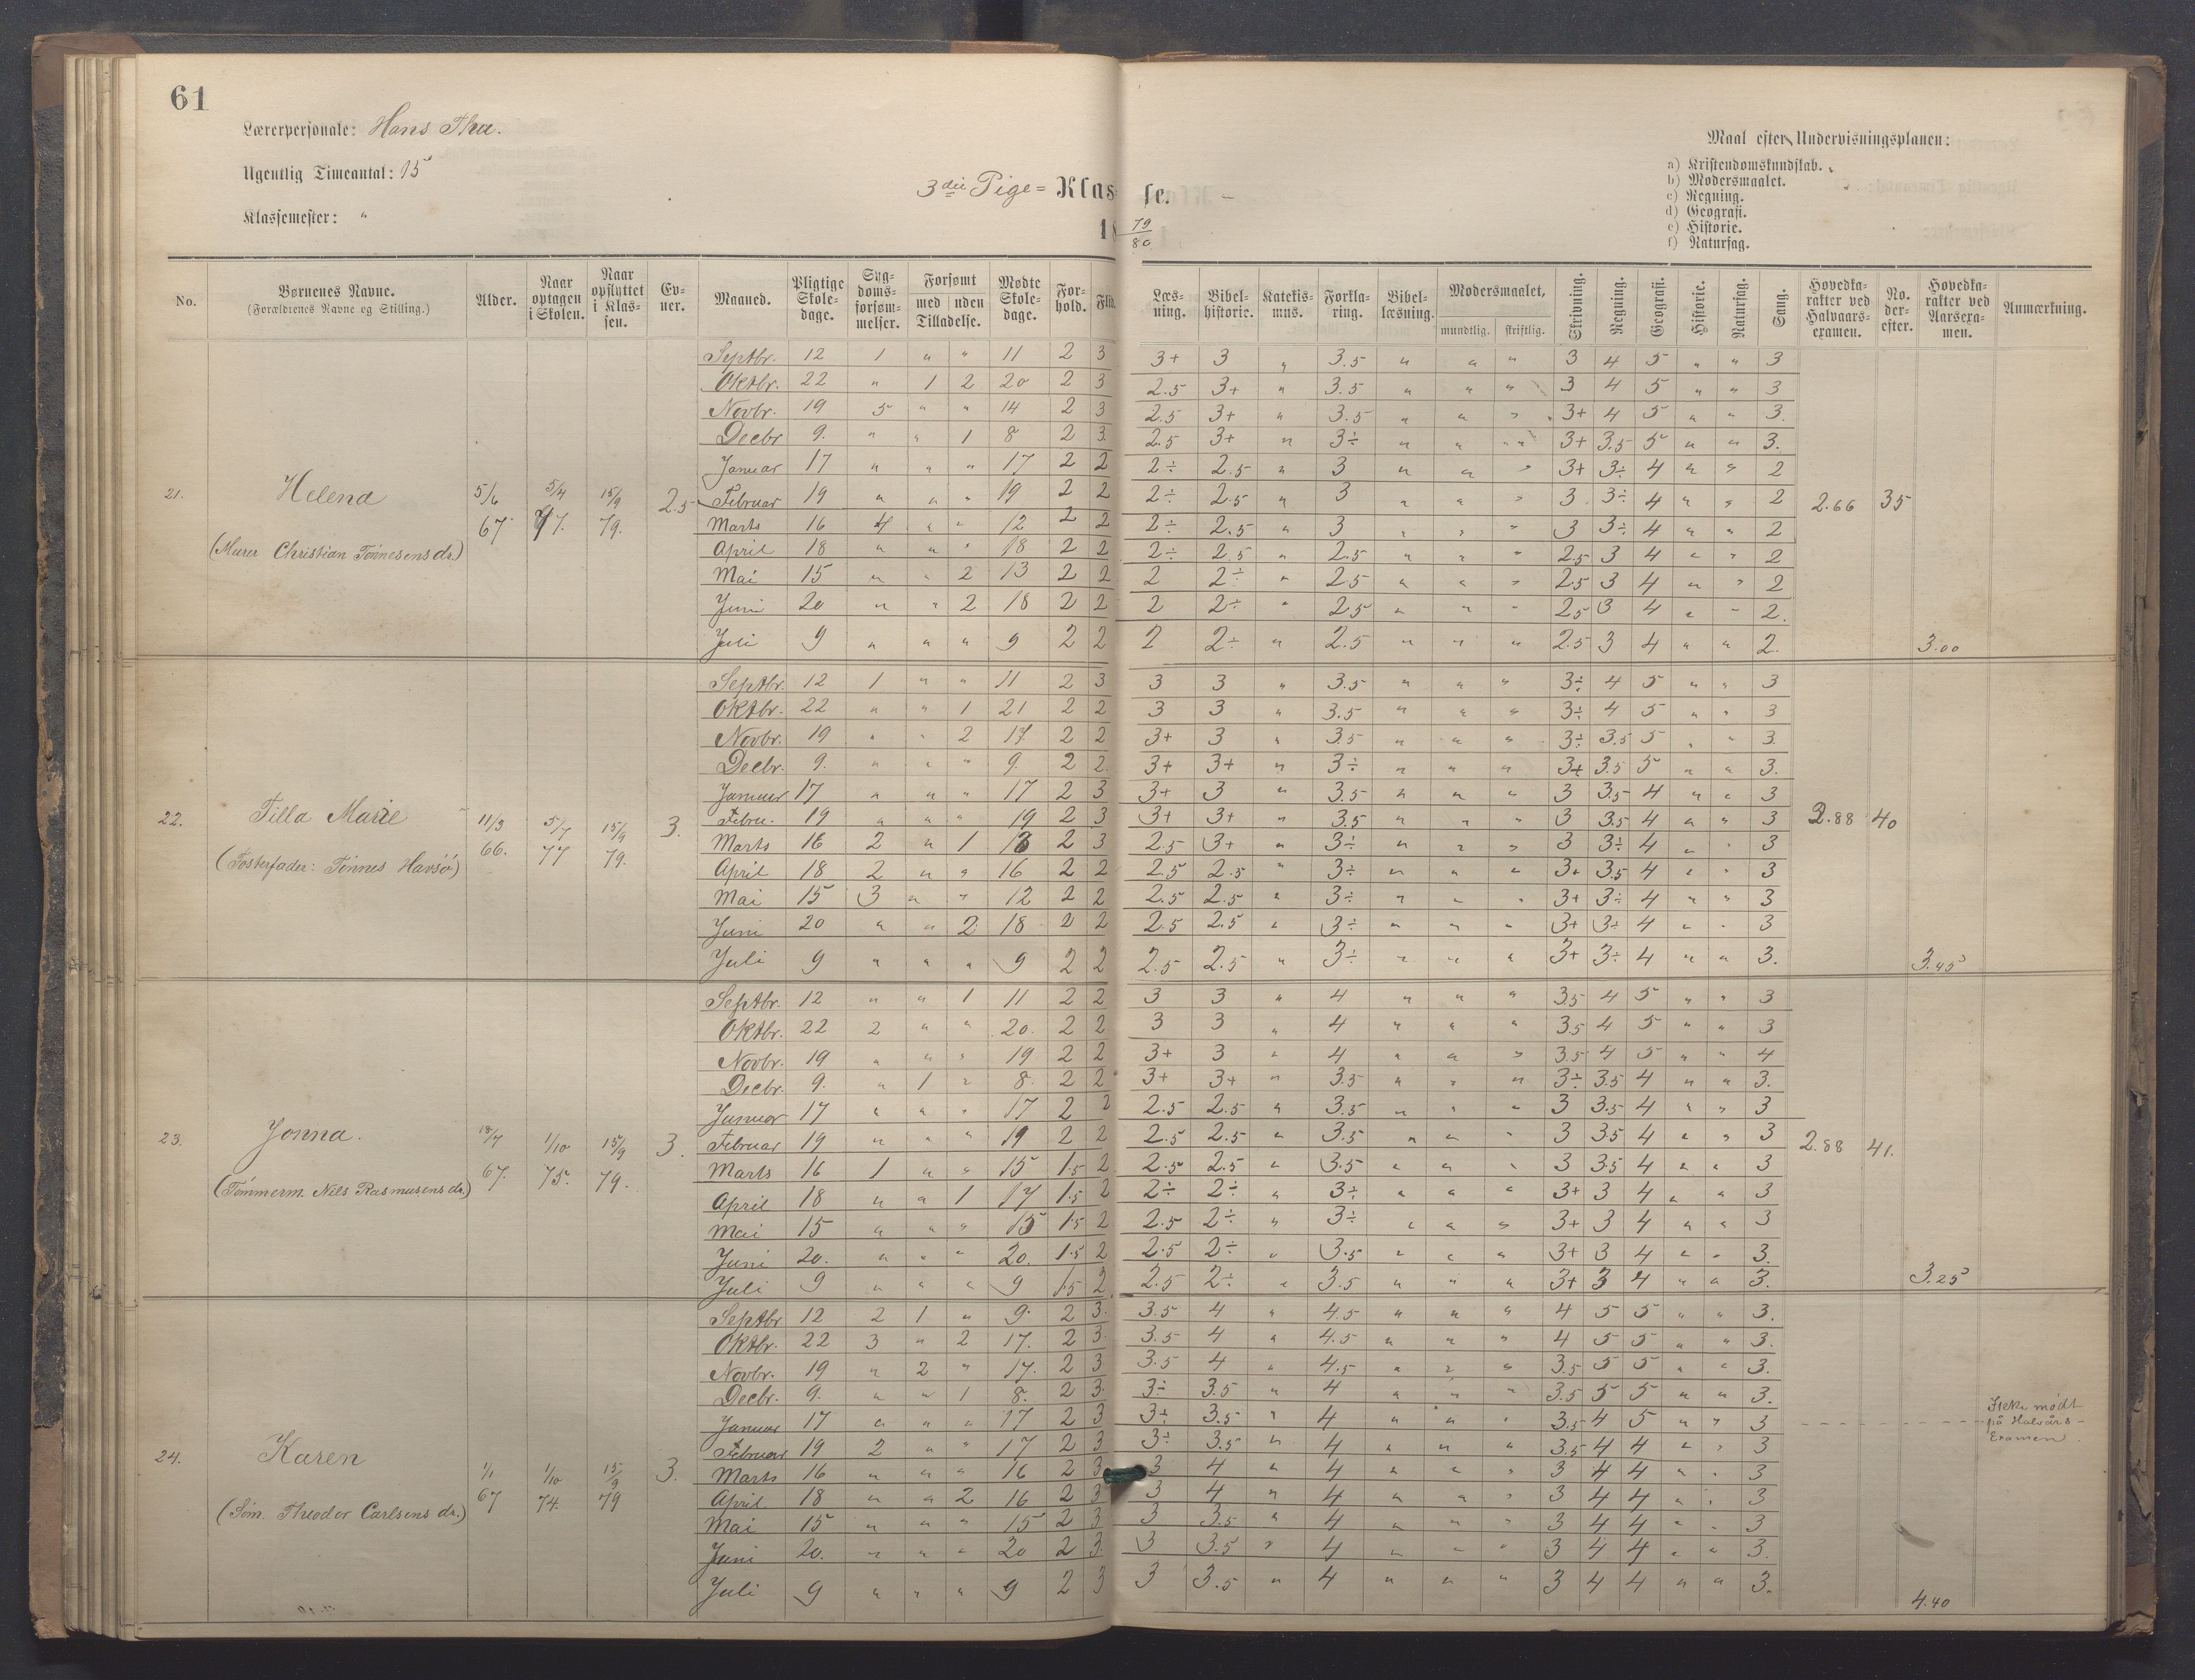 61
Lærerpersonale: Hans Thu.
Ugentlig Timeantal: 15
Klassemester: "
3die Pige= Klasse.
18 79/80
Maal efter Undervisningsplanen:
a) Kristendomskundskab.
b) Modersmaalet.
c) Regning.
d) Geografi.
e) Historie.
f) Naturfag.
No. | Børnenes Navne. (Forældrenes Navne og Stilling.) | Alder. | Naar optagen i Skolen. | Naar opflyttet i Klassen. | Evner. | Maaned. | Pligtige Skoledage. | Sygdomsforsømmelser. | Forsømt med Tilladelse. | uden Tilladelse. | Mødte Skoledage. | Forhold. | Flid. | Læsning. | Bibelhistorie. | Katekismus. | Forklaring. | Bibellæsning. | Modersmaalet, mundtlig. | skriftlig. | Skrivning. | Regning. | Geografi. | Historie. | Naturfag. | Sang. | Hovedkarakter ved Halvaarsexamen. | No. derefter. | Hovedkarakter ved Aarsexamen. | Anmærkning.
21. Helena (Murer Christian Tönnesens dr.) 5/6 67 | 5/4 77. | 15/9 79. | 2.5 | 2.66 | 35 | 3.00
Septbr. 12 1 " " 11 2 3 3+ 3 " 3.5 " " " 3 4 5 " " 3
Oktbr. 22 " 1 2 20 2 3 2.5 3+ " 3.5 " " " 3 4 5 " " 3
Novbr. 19 5 " " 14 2 3 2.5 3+ " 3.5 " " " 3+ 4 5 " " 3.
Decbr 9. " " 1 8 2 3. 2.5 3+ " 3÷ " " " 3+ 3.5 5 " " 3.
Januar 17 " " " 17 2 2 2÷ 2.5 " 3 " " " 3+ 3÷ 4 " " 2
Februar 19 " " " 19 2 2 2÷ 2.5 " 3 " " " 3 3÷ 4 " " 2
Marts 16 4 " " 12 2 2 2÷ 2.5 " 3 " " " 3 3÷ 4 " " 2
April 18 " " " 18 2 2 2÷ 2.5 " 2.5 " " " 2.5 3 4 " " 2
Mai 15 " " 2 13 2 2 2 2÷ " 2.5 " " " 2.5 3 4 " " 2
Juni 20 " " 2 18 2 2 2 2÷ " 2.5 " " " 2.5 3 4 " " 2.
Juli 9 " " " 9 2 2 2 2÷ " 2.5 " " " 2.5 3 4 " " 2.
22. Tilla Marie (Fosterfader: Tönnes Havsö) 11/3 66. | 5/7 77 | 15/9 79. | 3. | 2.88 | 40 | 3.45
Septbr. 12 1 " " 11 2 3 3 3 " 3.5 " " " 3÷ 4 5 " " 3
Oktbr. 22 " " 1 21 2 2 3 3 " 3.5 " " " 3÷ 4 5 " " 3
Novbr. 19 " " 2 17 2 2 3+ 3 " 3.5 " " " 3÷ 3.5 5 " " 3.
Decbr. 9. " " " 9. 2 2. 3+ 3+ " 3÷ " " " 3+ 3.5 5 " " 3.
Januar 17 " " " 17 2 3 3+ 3 " 3.5 " " " 3 3.5 4 " " 3
Febru. 19 " " " 19 2 3 3+ 3+ " 3.5 " " " 3 3.5 4 " " 3
Marts 16 2 " 1 13 2 3 2.5 3+ " 3÷ " " " 3 3÷ 4 " " 3
April 18 2 " " 16 2 2 2.5 2.5 " 3÷ " " " 3+ 3.5 4 " " 3
Mai 15 3 " " 12 2 2 2.5 2.5 " 3÷ " " " 3+ 3÷ 4 " " 3
Juni 20 " " 2 18 2 2 2.5 2.5 " 3÷ " " " 3+ 3÷ 4 " " 3
Juli 9 " " " 9 2 2 2.5 2.5 " 3÷ " " " 3+ 3÷ 4 " " 3.
23. Jonna. (Tömmerm. Nils Rasmusens dr.) 18/7 67. | 1/10 75. | 15/9 79. | 3. | 2.88 | 41. | 3.25
Septbr. 12 " " 1 11 2 2 3 3 " 4 " " " 3.5 4 5 " " 3
Oktbr. 22 2 " " 20. 2 2 3 3 " 4 " " " 3.5 4 5 " " 3
Novbr. 19 " " " 19 2 2 3+ 3 " 4 " " " 3.5 4 5 " " 4
Decbr. 9. " 1 " 8. 2 2 3+ 3+ " 3.5 " " " 3÷ 3.5 4 " " 3.
Januar 17 " " " 17 2 2 2.5 2.5 " 3.5 " " " 3 3.5 4 " " 3
Februar 19 " " " 19 2 2 2.5 2.5 " 3.5 " " " 3 3.5 4 " " 3
Marts 16 1 " " 15 1.5 2 2.5 2.5 " 3.5 " " " 3 3.5 4 " " 3
April 18 " " 1 17 1.5 2 2÷ 2÷ " 3÷ " " " 3+ 3 4 " " 3
Mai 15 " " " 15 1.5 2 2.5 2÷ " 3÷ " " " 3+ 3 4 " " 3
Juni 20. " " " 20. 1.5 2 2.5 2÷ " 3.5 " " " 3+ 3 4 " " 3.
Juli 9 " " " 9 1.5 2 2.5 2÷ " 3.5 " " " 3+ 3 4 " " 3.
24. Karen (Söm. Theodor Carlsens dr.) 1/1 67 | 1/10 74. | 15/9 79 | 3. | 4.40 | Ikke mödt på Halvårs-Examen.
Septbr 12 2 1 " 9. 2 3. 3.5 4 " 4.5 " " " 4 5 5 " " 3.
Oktbr. 22 3 " 2 17. 2 3. 3.5 4 " 4.5 " " " 4 5 5 " " 3.
Novbr. 19 " 2 " 17. 2 3. 3.5 4 " 4.5 " " " 3.5 5 5 " " 3.
Decbr. 9. " " 1 8. 2 3. 3÷ 3.5 " 4 " " " 3.5 5 5 " " 3.
Januar 17 " " " 17 2 3 3÷ 3.5 " 4 " " " 3.5 4 5 " " 3
Februar 19 2 " " 17 2 3 3÷ 3.5 " 4 " " " 3.5 4 4 " " 3
Marts 16 " " " 16 2 3 3 4 " 4 " " " 3 4 4 " " 3
April 18 " " 2 16 2 3 3 4 " 4 " " " 3 4 4 " " 3
Mai 15 " " " 15 2 3 3 3.5 " 4 " " " 3 4 4 " " 3
Juni 20. " " " 20 2 3. 3 3.5 " 4 " " " 3 4 4 " " 3.
Juli 9 " " " 9 2 3 3 3.5 " 4 " " " 3 4 4 " " 3.